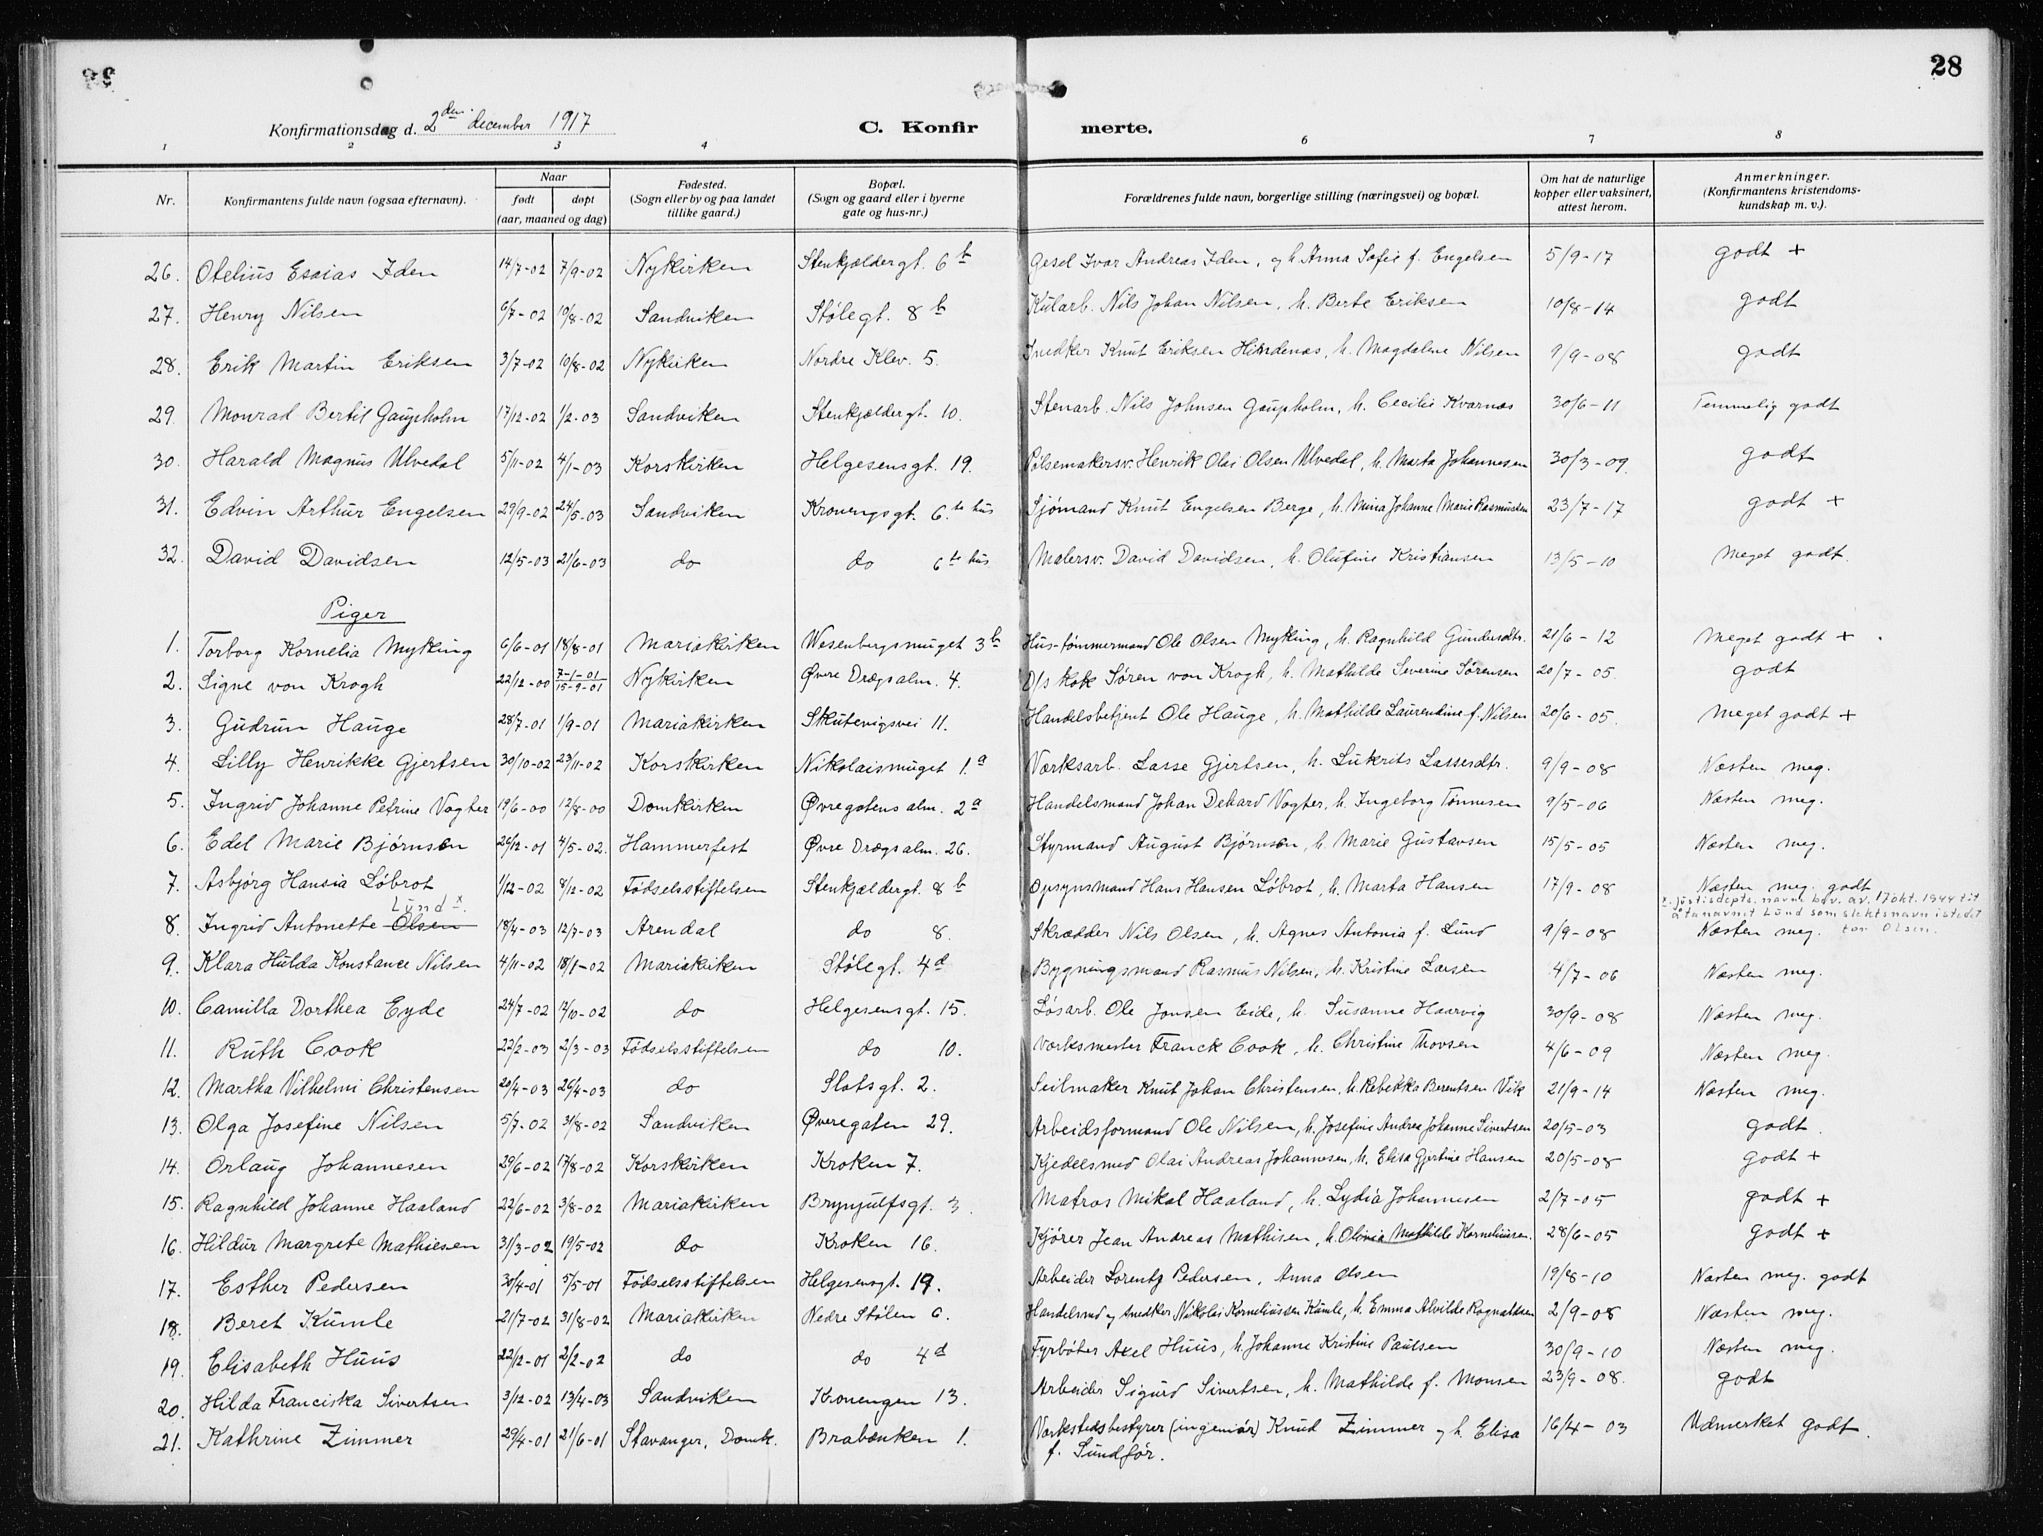 28
Konfirmationsdag d. 2den december 1917 C. Konfir merte.
1 2 3 4 6 7 8
Nr. Konfirmantens fulde navn (ogsaa efternavn). Naar født døpt (aar, maaned og dag) Fødested. (Sogn eller by og paa landet tillike gaard.) Bopæl. (Sogn og gaard eller i byerne gate og hus-nr.) Forældrenes fulde navn, borgerlige stilling (næringsvei) og bopæl. Om hat de naturlige kopper eller vaksinert, attest herom. Anmerkninger. (Konfirmantens kristendoms-kundskap m. v.).
26. Otelius Esaias Iden 14/7-02 7/9-02 Nykirken Stenkjældergt. 6b Gesel Ivar Andreas Iden, og h. Anna Sofie f. Engelsen 5/9-17 godt +
27. Henry Nilsen 6/7-02 10/8-02 Sandviken Stølegt. 8b Kularb. Nils Johan Nilsen, h. Berte Eriksen 10/8-14 godt
28. Erik Martin Eriksen 3/7-02 10/8-02 Nykirken Nordre Klev. 5. Snedker Knut Eriksen Hindenes, h. Magdalene Nilsen 9/9-08 godt
29. Monrad Bertil Gaupholm 17/12-02 1/2-03 Sandviken Stenkjældergt. 10. Stenarb. Nils Johnsen Gaupholm, h. Cecilie Kvarnas 30/6-11 Temmelig godt
30. Harald Magnus Ulvedal 5/11-02 4/1-03 Korskirken Helgesensgt. 19. Pølsemakersv. Henrik Olai Olsen Ulvedal, h. Marta Johannesen 30/3-09. godt
31. Edvin Arthur Engelsen 29/9-02 24/5-03 Sandviken Kronengsgt. 6.te hus Sjømand Knut Engelsen Berge, h. Mina Johanne Marie Rasmussen 23/7-17 godt +
32. David Davidsen 12/5-03 21/6-03 do do 6te hus Malersv. David Davidsen, h. Olufine Kristiansen 13/5-10 Meget godt.
Piger
1. Torborg Kornelia Myking 6/6-01 18/8-01 Mariakirken Wesenbergsmuget 3b Hus-tømmermand Ole Olsen Myking, h. Ragnhild Gundersdtr. 21/6-12 Meget godt +
2. Signe von Krogh 22/12-00 7-1-01 15-9-01 Nykirken Øvre Drægsalm. 4. D/s kok Søren von Krogh, h. Mathilde Severine Sørensen 20/7-05. godt
3. Gudrun Hauge 28/7-01 1/9-01 Mariakirken Skutevigsvei 11. Handelsbetjent Ole Hauge, h. Mathilde Laurendine f. Nilsen 20/6-05. Meget godt +
4. Lilly Henrikke Gjertsen 30/10-02 23/11-02 Korskirken Nikolaismuget 1.a Værksarb. Lasse Gjertsen, h. Lukrits Lassesdtr. 9/9-08 Næsten meg.
5. Ingrid Johanne Petrine Vogter 19/6-00 12/8-00 Domkirken Øvregatens alm. 2a Handelsmand Johan Dehard Vogter, h. Ingeborg Tønnesen 9/5-06 Næsten meg.
6. Edel Marie Bjørnsen 26/12-01 4/5-02. Hammerfest Øvre Drægsalm. 26. Styrmand August Bjørnsen, h. Marie Gustavsen 15/5-05 Næsten meg.
7. Asbjørg Hansia Løbrot 1/12-02 8/12-02 Fødselsstiftelsen Stenkjældergt. 8b Opsynsmand Hans Hansen Løbrot, h. Marta Hansen 17/9-08 Næsten meg. godt
Lund x x. justisdepts. navnebev. av. 17 okt. 1944 til å ta navnet Lund som slektsnavn istedet for Olsen.
8. Ingrid Antonette Olsen 18/4-03 12/7-03 Arendal do 8. Skrædder Nils Olsen, h. Agnes Antonia f. Lund 9/9-08 Næsten meg.
9. Klara Hulda Konstance Nilsen 4/11-02 18/1-02 Mariakirken Stølegt. 4d Bygningsmand Rasmus Nilsen, h. Kristine Larsen 4/7-06 Næsten meg.
10. Camilla Dorthea Eyde 24/7-02 12/10-02 do Helgesensgt. 15. Løsarb. Ole Jonsen Eide, h. Susanne Haarvig 30/9-08 Næsten meg.
11. Ruth Cook 22/2-03 2/3-03 Fødselsstiftelsen do 10. Værksmester Franck Cook, h. Christine Thovsen 4/6-09 Næsten meg.
12. Martha Vilhelmi Christensen 20/4-03 26/4-03 do Slotsgt. 2. Seilmaker Knut Johan Christensen, h. Rebekka Berentsen Vik 21/9-14 Næsten meg.
13. Olga Josefine Nilsen 5/7-02 31/8-02 Sandviken Øvregaten 29. Arbeidsformand Ole Nilsen, h. Josefine Andrea Johanne Sivertsen 20/5-03 godt.
14. Orlaug Johannesen 29/6-02 17/8-02 Korskirken Kroken 7. Kjedelsmed Olai Andreas Johannesen, h. Elisa Gjertine Hansen 20/5-08 godt +
15. Ragnhild Johanne Haaland 22/6-02 3/8-02 Mariakirken Brynjulfsgt. 3. Matros Mikal Haaland, h. Lydia Johannesen 2/7-05 godt +
16. Hildur Margrete Mathiesen 31/3-02 19/5-02 do Kroken 16. Kjører Jean Andreas Mathisen, h. Olivia Mathilde Korneliussen. 28/6-05 godt +
17. Esther Pedersen 30/4-01 5/5-01 Fødselsstiftelsen Helgesensgt. 19. Arbeider Lorentz Pedersen, Anna Olsen 19/8-10 Næsten meg. godt
18. Beret Kumle 21/7-02 31/8-02 Mariakirken Nedre Stølen 6. Handelsmd og snedker Nikolai Korneliussen Kumle, h. Emma Alvilde Ragnaldsen 2/9-08 Næsten meg.
19. Elisabeth Huus 22/12-01 2/2-02 do do 4d Fyrbøter Axel Huus, h. Johanne Kristine Paulsen 30/9-10 Næsten meg.
20. Hilda Franciska Sivertsen 3/12-02 13/4-03 Sandviken Kronengen 13. Arbeider Sigurd Sivertsen, h. Mathilde f. Monsen 23/9-08. godt
21. Kathrine Zimmer 29/4-01 21/6-01 Stavanger, Domk. Brabænken 1. Værkstedsbestyrer (ingeniør) Knud Zimmer og h. Elisa f. Sundfør. 16/4-03 Udmerket godt.